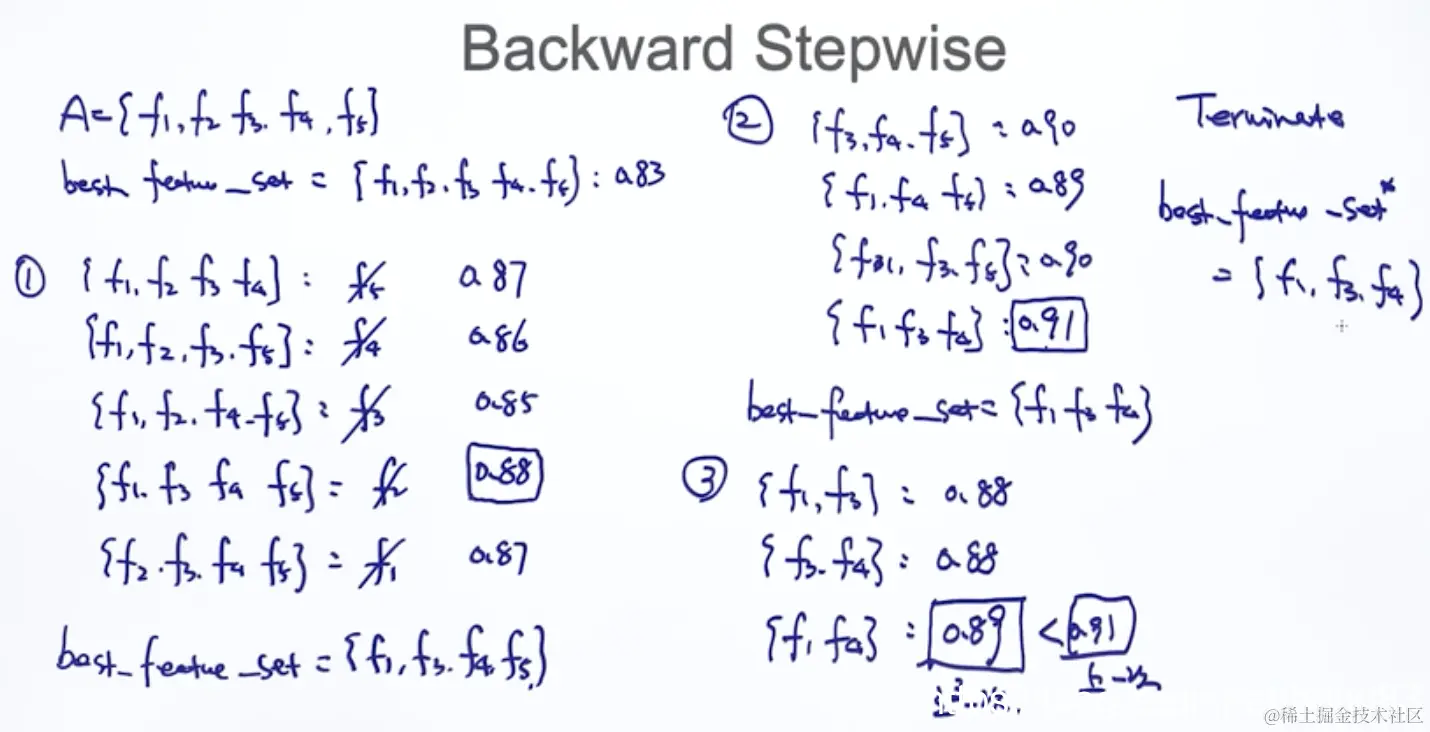 Backward Stepwise
A={f1, f2 f3. f4, f5}
best feature_set = {f1, f2. f3 f4. f5}: 0.83
① {f1, f2 f3 f4}: f5 0.87
{f1, f2, f3. f5}: f4 0.86
{f1, f2. f4-f5}: f3 0.85
{f1. f3 f4 f5}= f2 0.88
{f2. f3. f4 f5}= f1 0.87
best_featue_set={f1, f3. f4, f5}
② {f3, f4. f5}: 0.90
{f1. f4 f5}: 0.89
{f1, f3. f5}: 0.90
{f1 f3 f4}: 0.91
best_featue_set={f1 f3 f4}
③ {f1, f3}: 0.88
{f3. f4}: 0.88
{f1 f4}: 0.89 < 0.91
Terminate
best_featue_set*
= {f1, f3, f4}
@稀土掘金技术社区